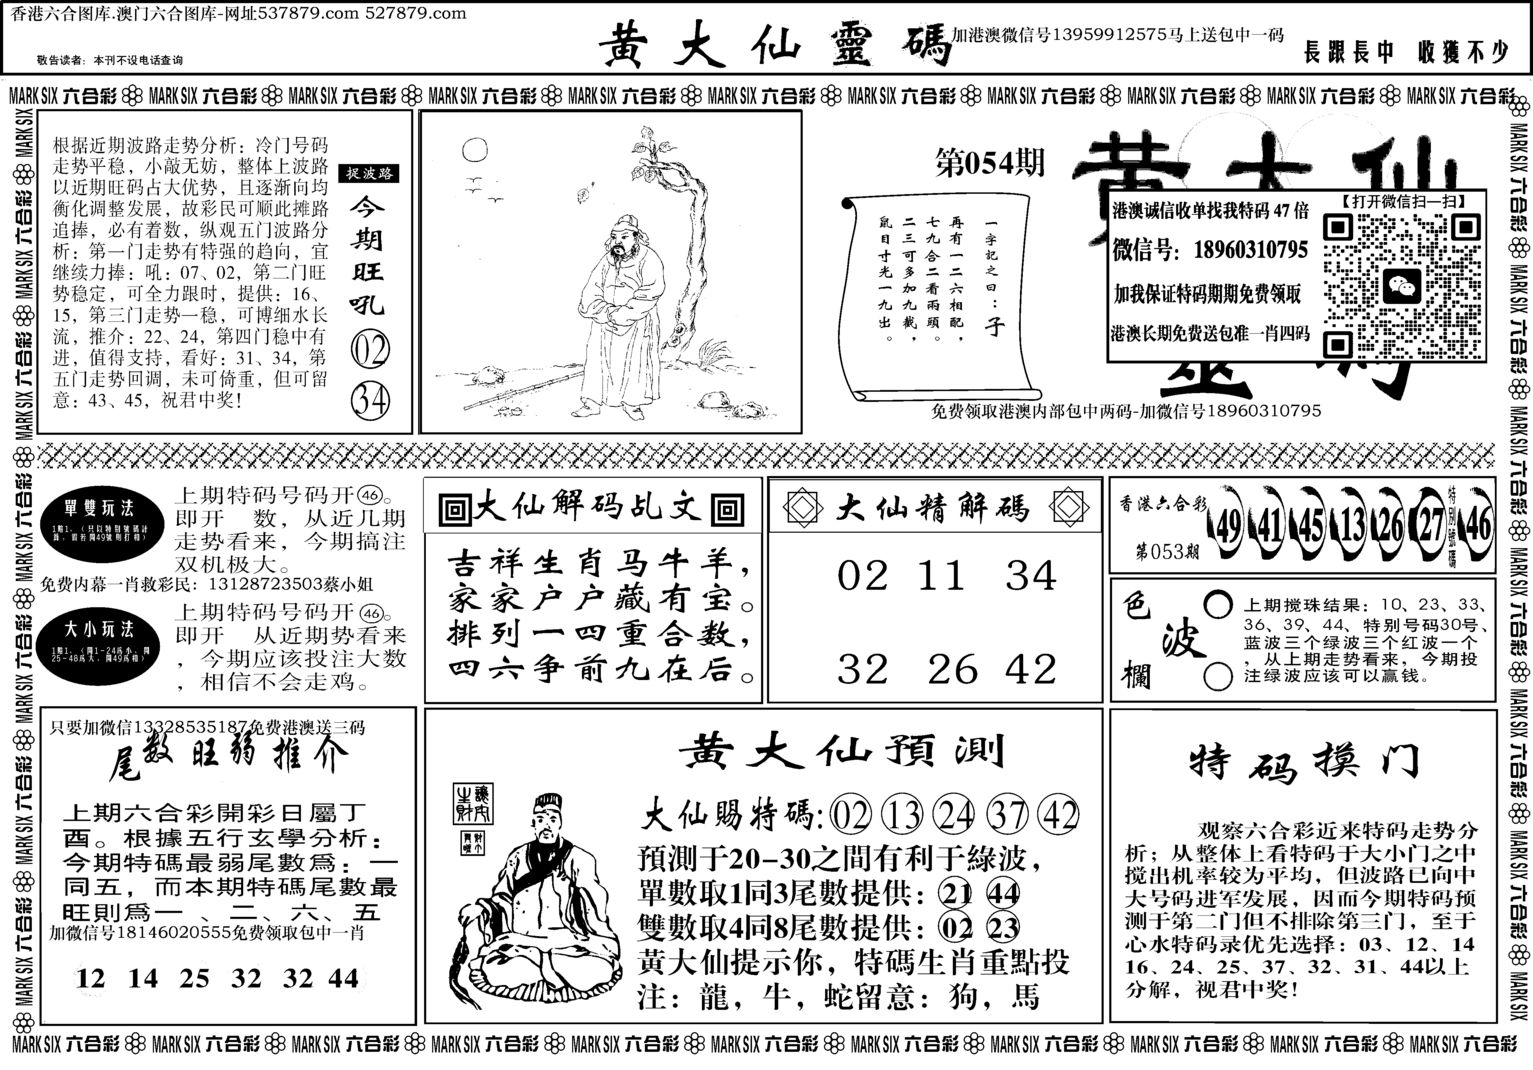 香港六合图库.澳门六合图库-网址537879.com 527879.com
敬告读者：本刊不设电话查询
黄大仙靈碼
加港澳微信号13959912575马上送包中一码
長跟長中 收獲不少
MARK SIX 六合彩 MARK SIX 六合彩 MARK SIX 六合彩 MARK SIX 六合彩 MARK SIX 六合彩 MARK SIX 六合彩 MARK SIX 六合彩 MARK SIX 六合彩 MARK SIX 六合彩 MARK SIX 六合彩 MARK SIX 六合彩
根据近期波路走势分析：冷门号码
走势平稳，小敲无妨，整体上波路
以近期旺码占大优势，且逐渐向均
衡化调整发展，故彩民可顺此摊路
追捧，必有着数，纵观五门波路分
析：第一门走势有特强的趋向，宜
继续力捧：吼：07、02，第二门旺
势稳定，可全力跟时，提供：16、
15，第三门走势一稳，可博细水长
流，推介：22、24，第四门稳中有
进，值得支持，看好：31、34，第
五门走势回调，未可倚重，但可留
意：43、45，祝君中奖！
捉波路
今期旺吼
02
34
第054期
一字記之曰：子
再有一二六相配，
七九合二看兩頭。
二三可多加九截，
鼠目寸光一九出。
黄大仙
靈碼
港澳诚信收单找我特码 47 倍
微信号：18960310795
加我保证特码期期免费领取
港澳长期免费送包准一肖四码
【打开微信扫一扫】
免费领取港澳内部包中两码-加微信号18960310795
單雙玩法
1賠1，（只以特別號碼計
算，如若開49號則打和）
上期特码号码开㊻。
即开 数，从近几期
走势看来，今期搞注
双机极大。
免费内幕一肖救彩民：13128723503蔡小姐
大小玩法
1賠1，（開1-24為小，開
25-48為大，開49為和）
上期特码号码开㊻。
即开 从近期势看来
，今期应该投注大数
，相信不会走鸡。
大仙解码乩文
吉祥生肖马牛羊，
家家户户藏有宝。
排列一四重合数，
四六争前九在后。
大仙精解碼
02 11 34
32 26 42
香港六合彩
第053期
49 41 45 13 26 27
特別號碼
46
色波欄
上期搅珠结果：10、23、33、
36、39、44、特别号码30号、
蓝波三个绿波三个红波一个
，从上期走势看来，今期投
注绿波应该可以赢钱。
只要加微信13328535187免费港澳送三码
尾数旺弱推介
上期六合彩開彩日屬丁
酉。根據五行玄學分析：
今期特碼最弱尾數爲：一
同五，而本期特碼尾數最
旺則爲一 、二、六、五
加微信号18146020555免费领取包中一肖
12 14 25 32 32 44
黄大仙預測
大仙賜特碼:02 13 24 37 42
預測于20-30之間有利于綠波，
單數取1同3尾數提供：21 44
雙數取4同8尾數提供：02 23
黃大仙提示你，特碼生肖重點投
注：龍，牛，蛇留意：狗，馬
特码摸门
观察六合彩近来特码走势分
析；从整体上看特码于大小门之中
搅出机率较为平均，但波路已向中
大号码进军发展，因而今期特码预
测于第二门但不排除第三门，至于
心水特码录优先选择：03、12、14
16、24、25、37、32、31、44以上
分解，祝君中奖！
MARK SIX 六合彩 MARK SIX 六合彩 MARK SIX 六合彩 MARK SIX 六合彩 MARK SIX 六合彩 MARK SIX 六合彩 MARK SIX 六合彩 MARK SIX 六合彩 MARK SIX 六合彩 MARK SIX 六合彩 MARK SIX 六合彩